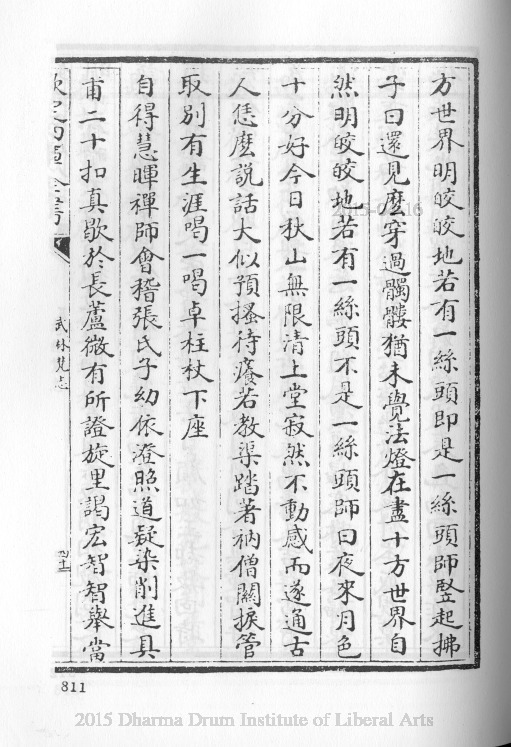 方世界明皎皎地若有一絲頭即是一絲頭師竪起拂
子曰還見麽穿過髑髏猶未覺法燈在盡十方世界自
然明皎皎地若有一絲頭不是一絲頭師曰夜來月色
十分好今日秋山無限清上堂寂然不動感而遂通古
人恁麽説話大似預搔待癢若教渠踏著衲僧關捩管
取别有生涯喝一喝卓柱杖下座
自得慧暉禪師會稽張氏子幼依澄照道凝染削進具
甫二十扣真歇於長蘆微有所證旋里謁宏智智舉當
欽定四庫全書
武林梵志
2015-03-16
811
2015 Dharma Drum Institute of Liberal Arts